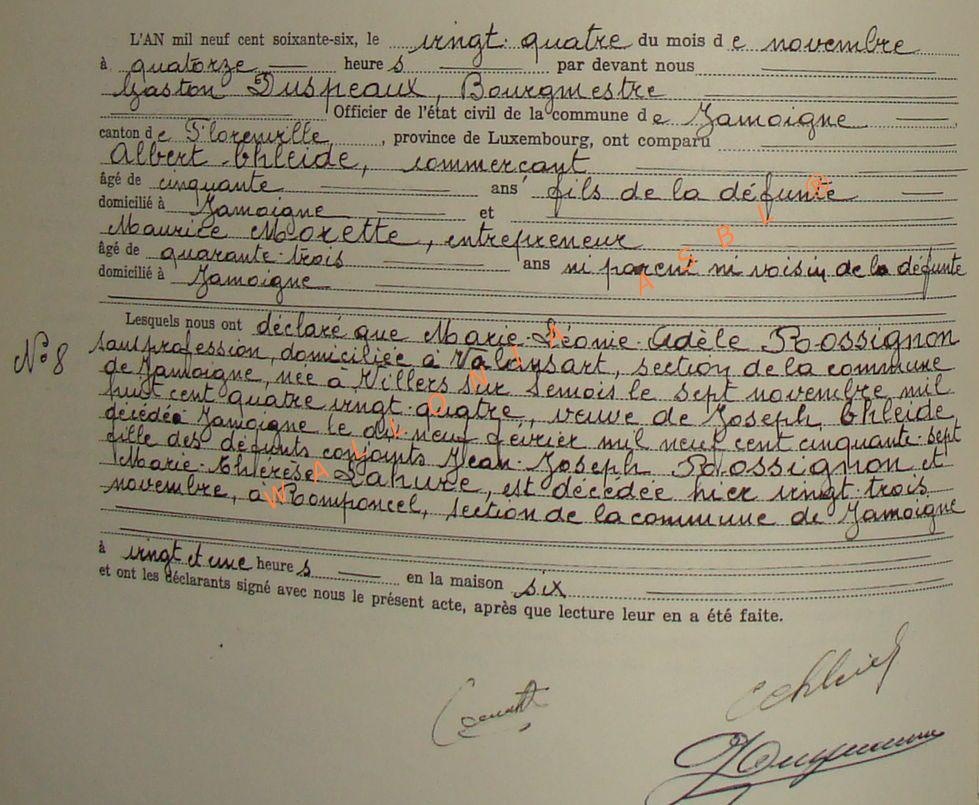 L'AN mil neuf cent soixante-six, le vingt-quatre du mois de novembre
à quatorze heures par devant nous
Gaston Duspeaux, Bourgmestre
Officier de l'état civil de la commune de Jamoigne
canton de Florenville, province de Luxembourg, ont comparu
Albert Thleide, commerçant
âgé de cinquante ans fils de la défunte
domicilié à Jamoigne et
Maurice Morette, entrepreneur
âgé de quarante-trois ans ni parent ni voisin de la défunte
domicilié à Jamoigne
Lesquels nous ont déclaré que Marie-Léonie-Adèle Rossignon
N° 8
sans profession, domiciliée à Valansart, section de la commune
de Jamoigne, née à Villers sur Semois le sept novembre mil
huit cent quatre vingt-quatre, veuve de Joseph Thleide,
décédé à Jamoigne le dix-neuf février mil neuf cent cinquante-sept
fille des défunts conjoints Jean-Joseph Rossignon et
Marie-Thérèse Lahure, est décédée hier vingt-trois
novembre, à Romponcel, section de la commune de Jamoigne
à vingt et une heures en la maison six
et ont les déclarants signé avec nous le présent acte, après que lecture leur en a été faite.
WALLONIA ASBL ®